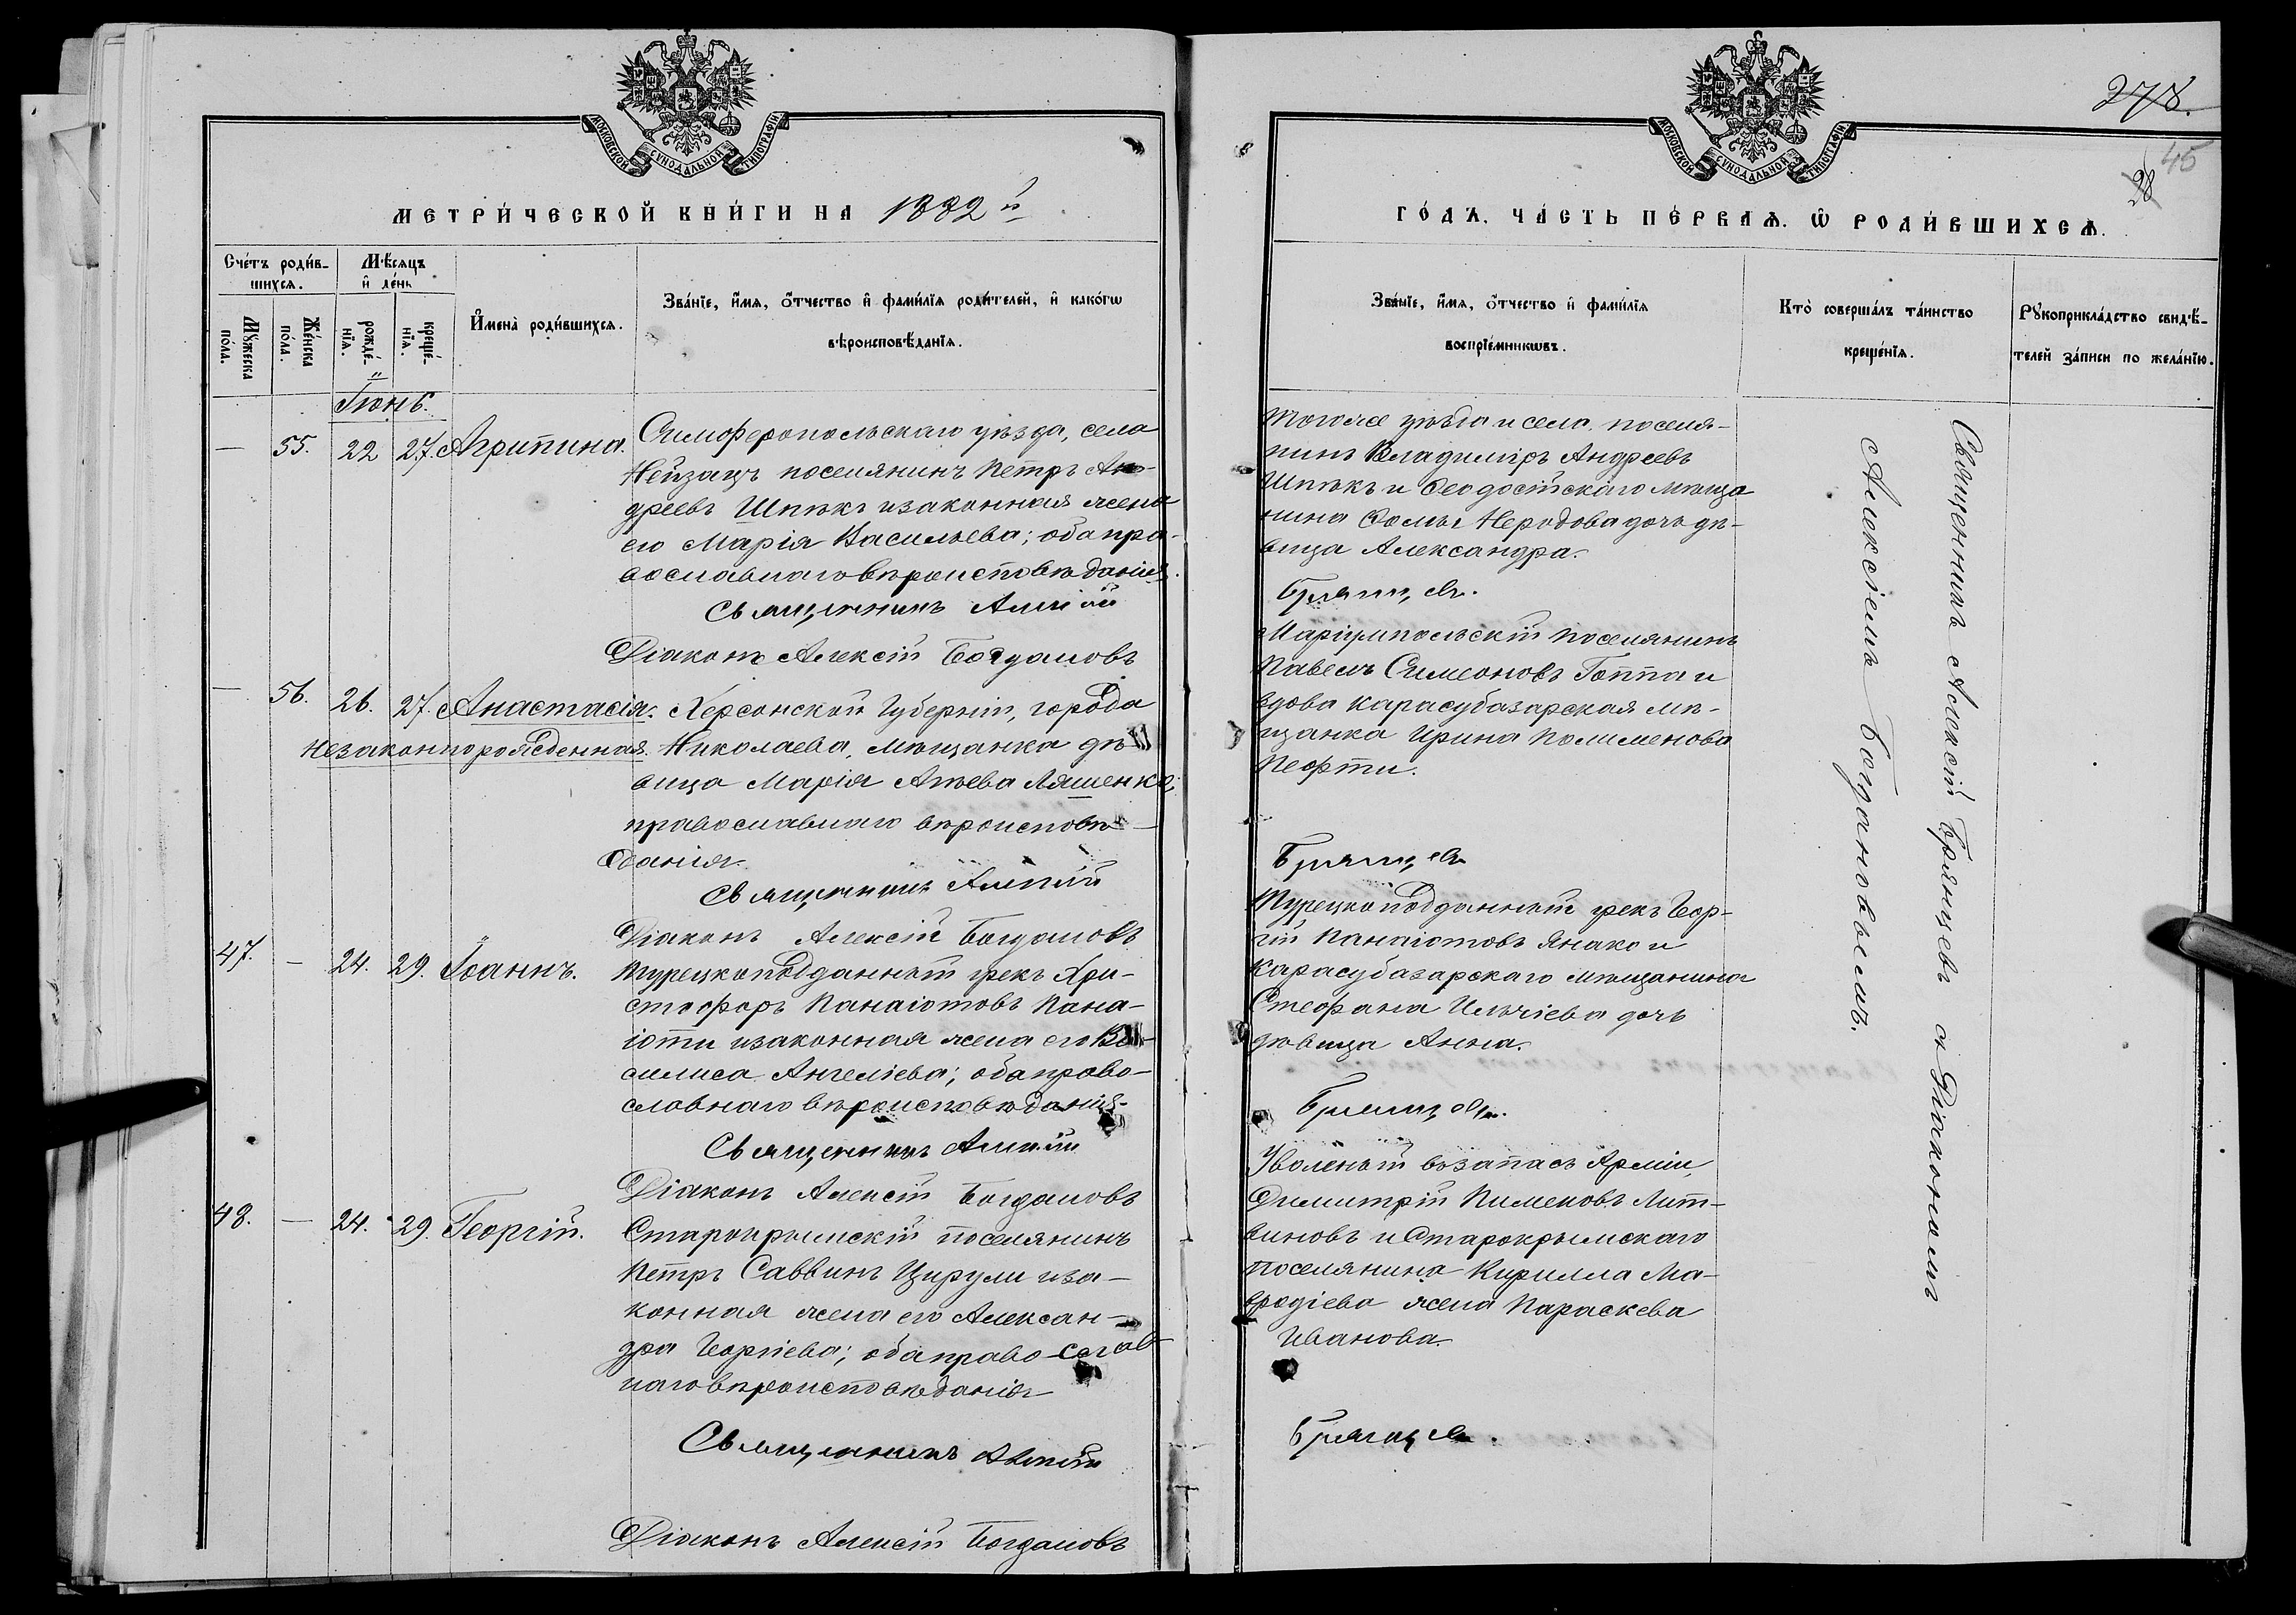 МОСКОВСКОЙ СѴНОДАЛЬНОЙ ТИПОГРАФІИ
МЕТРИ́ЧЕСКОЙ КНИ́ГИ НА 1882 й
Сче́тъ роди́в-
шихся.
Мѣ́сяцъ
и҆ де́нь
Мꙋ́жеска
по́ла.
Же́нска
по́ла.
рожде́-
нїя.
креще́-
нїя.
И҆мена̀ роди́вшихся.
Зва́нїе, и҆́мя, ѻ҆́тчество и҆ фами́лїя роди́телей, и҆ како́гѡ
вѣроисповѣ́данїя.
Іюнь.
— 55. 22 27. Агрипина.
Симферопольскаго уѣзда, села
Нейзацъ поселянинъ Петръ Ан-
древъ Шпѣкъ и законная жена
его Марія Васильева; оба пра-
вославнаго вѣроисповѣданія.
Священникъ Алексій
Діаконъ Алексій Богдановъ
— 56. 26. 27. Анастасія.
незаконнорожденная.
Херсонской Губерніи, города
Николаева, мѣщанка дѣ-
вица Марія Ляшенко;
православнаго вѣроисповѣ-
данія.
Священникъ Алексій
Діаконъ Алексій Богдановъ
47. — 24. 29. Іоаннъ.
Турецкоподданный грекъ Хри-
стофоръ Панаіотовъ Пана-
іоти и законная жена его Ва-
силиса Ангеліева; оба право-
славнаго вѣроисповѣданія.
Священникъ Алексій
Діаконъ Алексій Богдановъ
48. — 24. 29. Георгій.
Старокрымскій поселянинъ
Петръ Саввинъ Цирули и за-
конная жена его Алексан-
дра Георгіева; оба православ
наго вѣроисповѣданія
Священникъ Алексій
Діаконъ Алексій Богдановъ
278.
45
28
МОСКОВСКОЙ СѴНОДАЛЬНОЙ ТИПОГРАФІИ
ГО́ДЪ. ЧА́СТЬ ПЕ́РВАѦ. Ѡ҆ РОДИ́ВШИХСѦ.
Зва́нїе, и҆́мя, ѻ҆́тчество и҆ фами́лїя
воспрїе́мникѡвъ.
Кто̀ соверша́лъ та́инство
креще́нїя.
Рꙋкоприкла́дство свидѣ́-
телей за́писи по жела́нїю.
Тогоже уѣзда и села поселя-
нинъ Владиміръ Андреевъ
Шпѣкъ и Ѳеодосійскаго мѣща
нина Ѳомы Неродова дочь дѣ-
вица Александра.
Брянцевъ.
Маріумпольскій поселянинъ
Павелъ Симеоновъ Топпа и
вдова карасубазарская мѣ-
щанка Ирина Полименова
Пефти.
Брянцевъ
Турецкоподданный грекъ Геор-
гій Панаіотовъ Янако и
Карасубазарскаго мѣщанина
Стефана Ильчіева дочь
дѣвица Анна.
Брянцевъ.
Уволеный въ запасъ Арміи,
Димитрій Пименовъ Лит-
виновъ и Старокрымскаго
поселянина Кирилла Ма-
вродіева жена Параскева
Иванова.
Брянцевъ.
Священникъ Алексій Брянцевъ съ Діакономъ
Алексіемъ Богдановымъ.